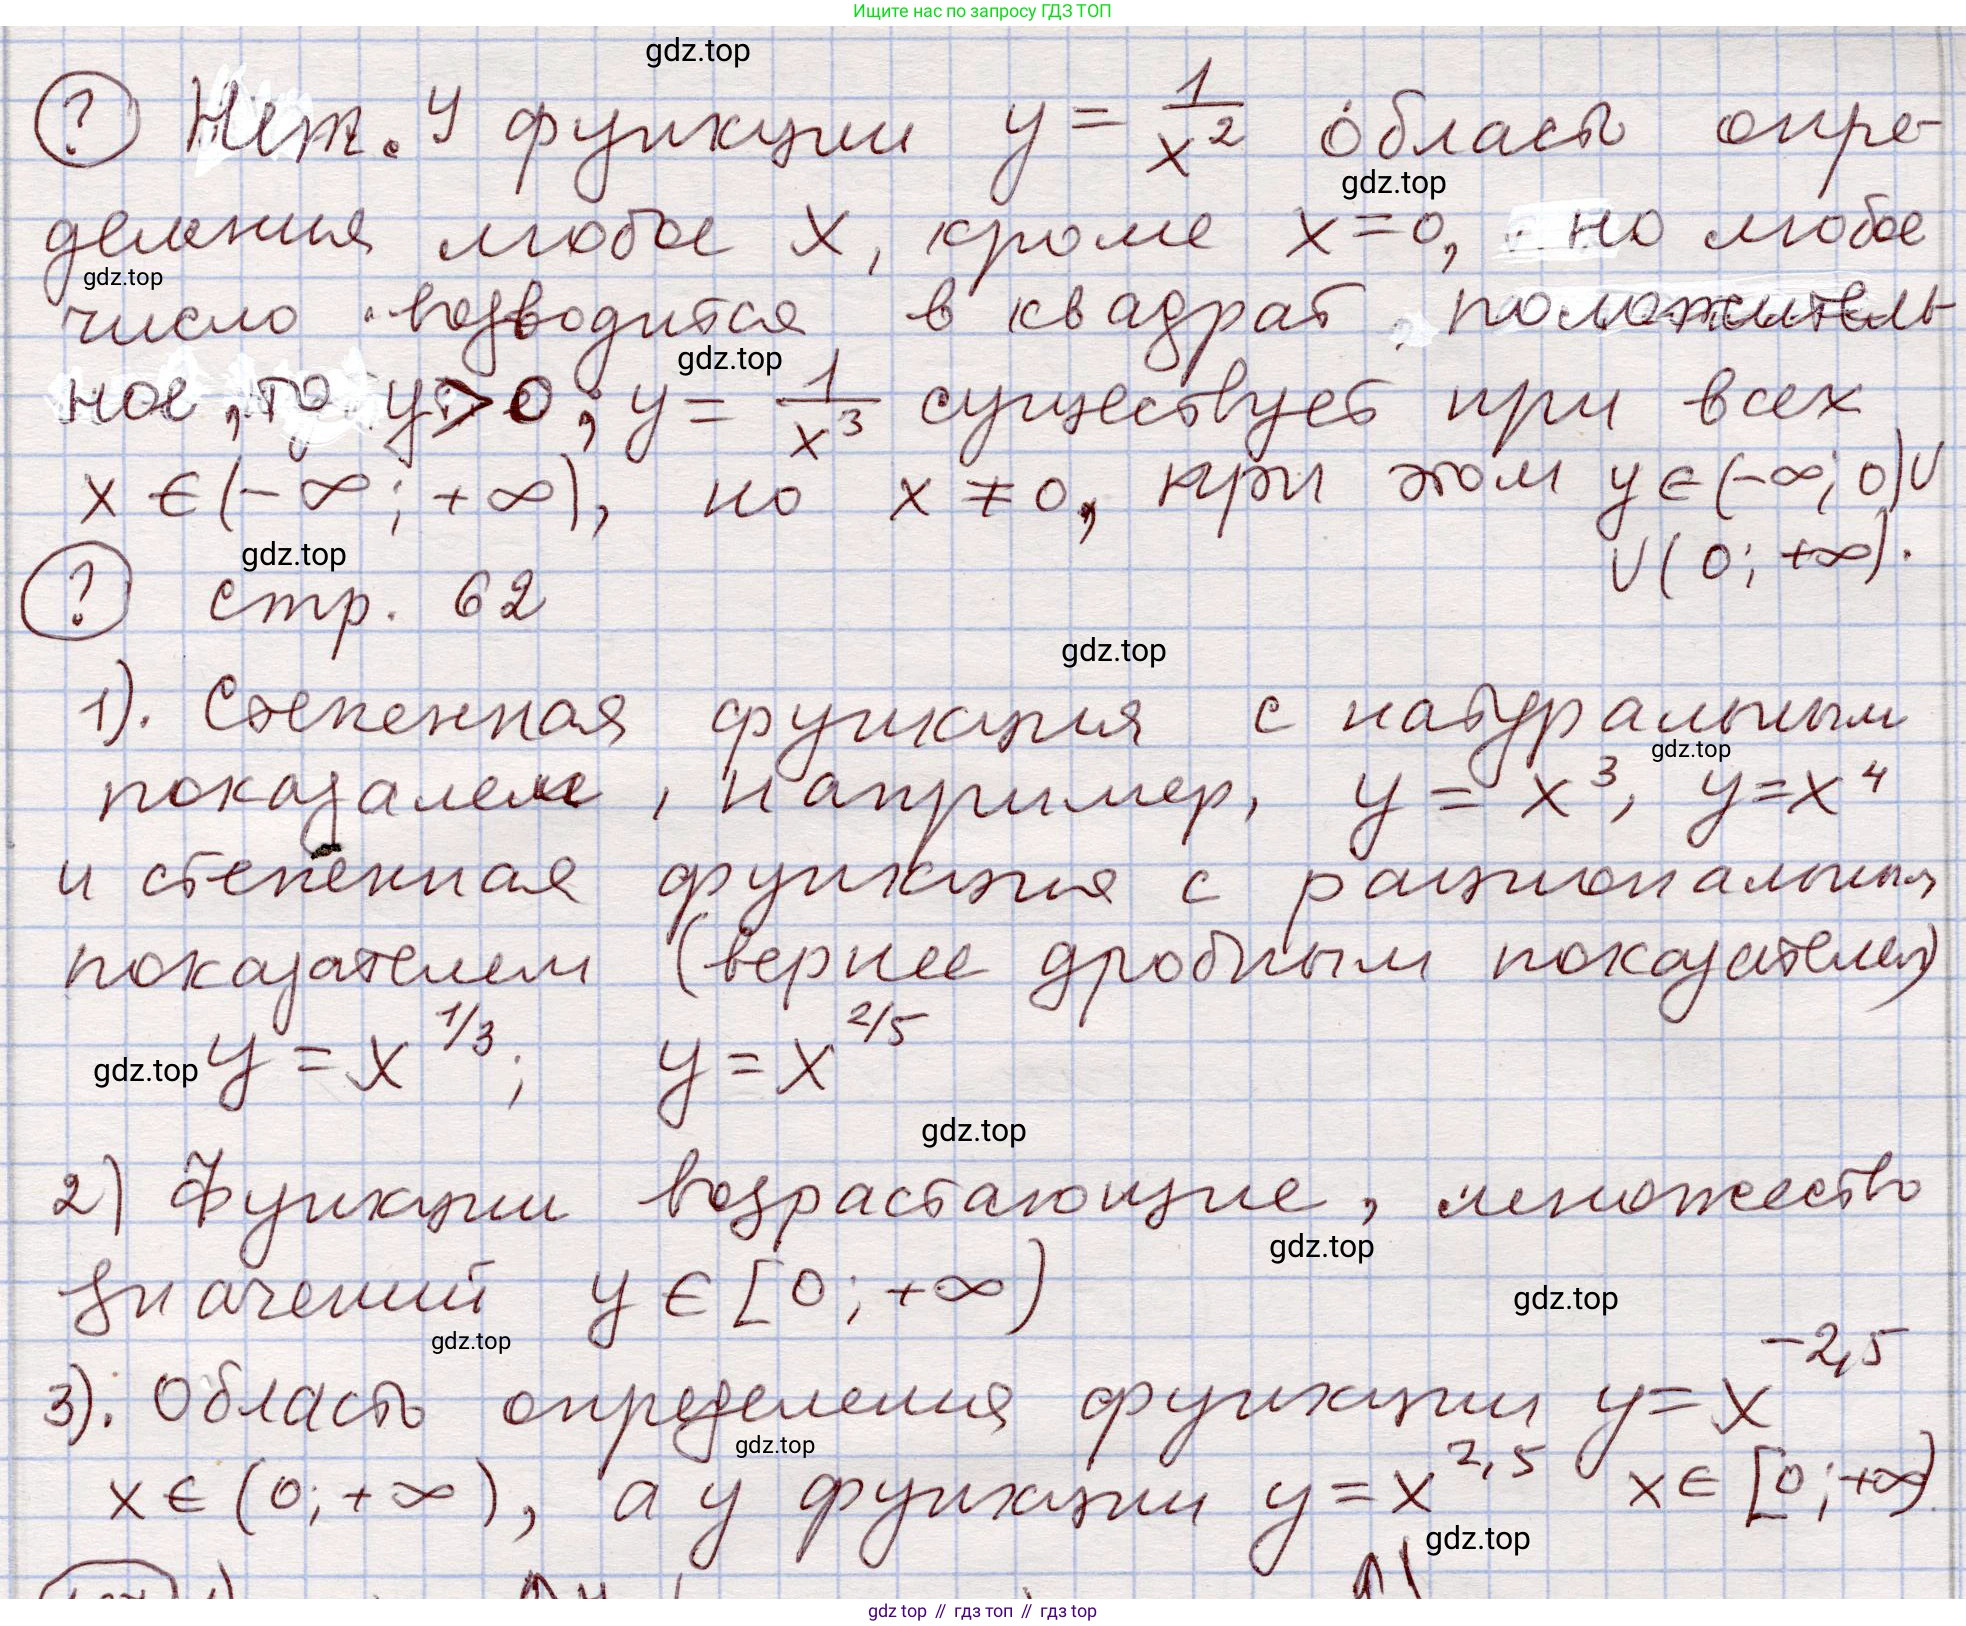 Ищите нас по запросу ГДЗ ТОП
gdz.top
? Нет. У функции y = 1/x² область опре-
gdz.top
деления любое x, кроме x=0, но любое
gdz.top
число возводится в квадрат, положитель-
gdz.top
ное, то y>0; y = 1/x³ существует при всех
x ∈ (-∞; +∞), но x ≠ 0, при этом y ∈ (-∞; 0)∪
∪(0; +∞).
gdz.top
? стр. 62
gdz.top
1). Степенная функция с натуральным
gdz.top
показалем, например, y = x³, y=x⁴
и степенная функция с рациональным
показателем (вернее дробным показателем)
gdz.top y = x^1/3; y = x^2/5
gdz.top
2) Функции возрастающие, множество
gdz.top
значений y ∈ [0; +∞)
gdz.top
gdz.top
3). Область определения функции y = x^-2,5
gdz.top
x ∈ (0; +∞), а у функции y = x^2,5 x ∈ [0; +∞).
gdz.top
gdz top // гдз топ // гдз top